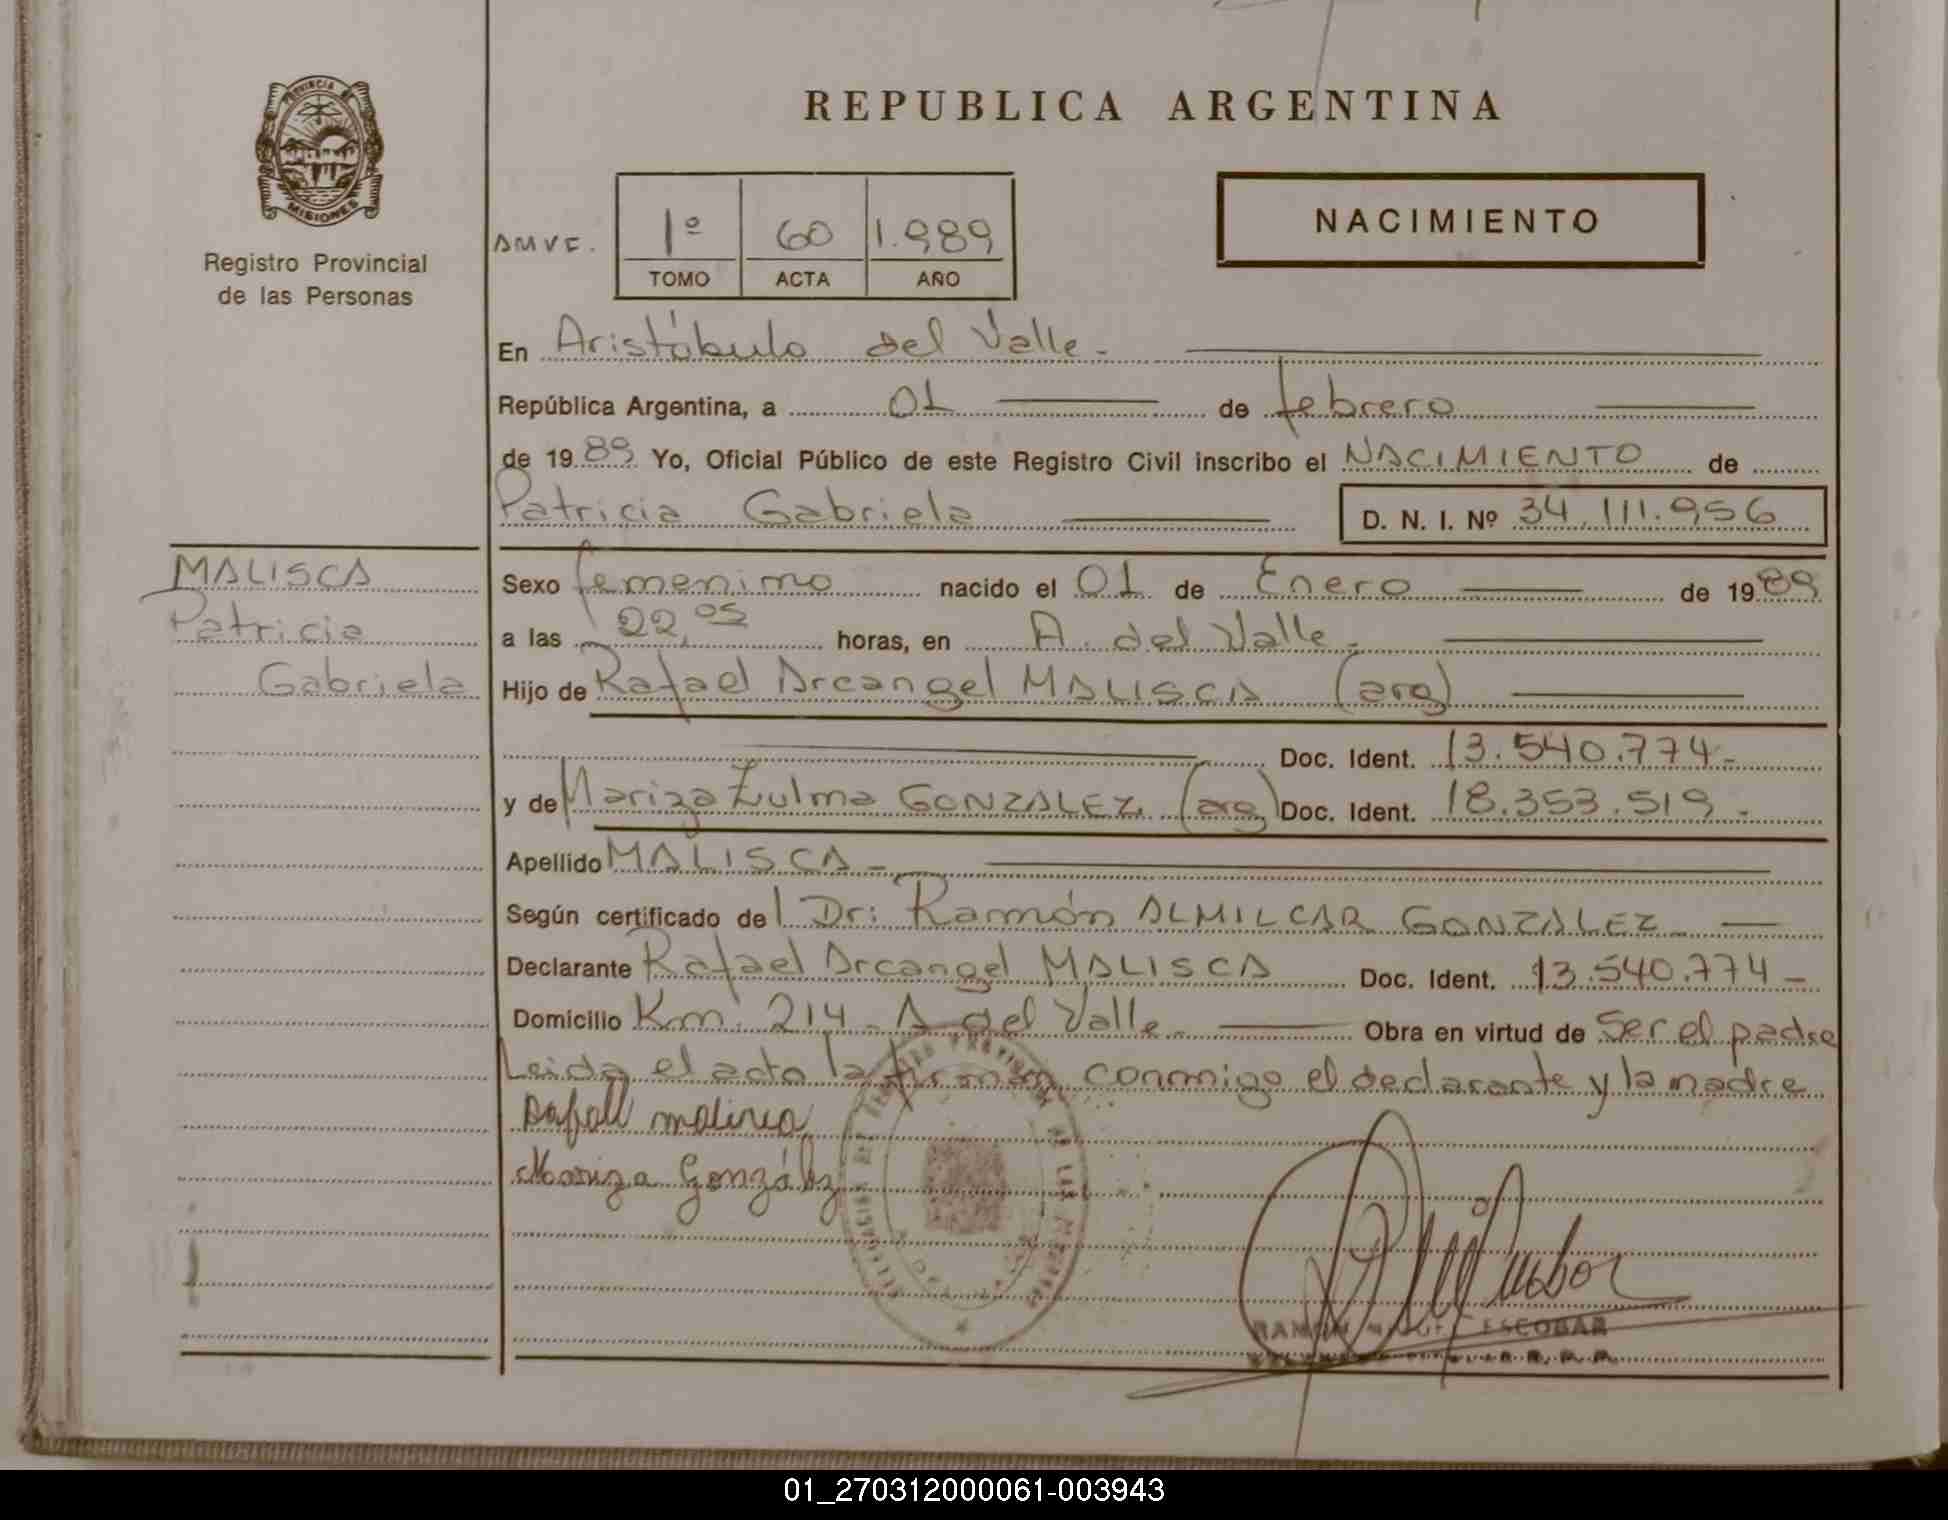 PROVINCIA DE
MISIONES
Registro Provincial
de las Personas
REPUBLICA ARGENTINA
NACIMIENTO
1º 60 1.989
TOMO ACTA AÑO
En Aristóbulo del Valle.-
República Argentina, a 01 de febrero
de 1989 Yo, Oficial Público de este Registro Civil inscribo el NACIMIENTO de
Patricia Gabriela D. N. I. Nº 34.111.956
MALISCA
Patricia
Gabriela
Sexo femenino nacido el 01 de Enero de 1989
a las 22,05 horas, en A. del Valle.-
Hijo de Rafael Arcangel MALISCA (arg)
Doc. Ident. 13.540.774-
y de Mariza Zulma GONZALEZ (arg) Doc. Ident. 18.353.519.-
Apellido MALISCA-
Según certificado del Dr: Ramón ALMILCAR GONZALEZ
Declarante Rafael Arcangel MALISCA Doc. Ident. 13.540.774-
Domicilio Km. 214- A del Valle- Obra en virtud de Ser el padre
Leida el acta la firman conmigo el declarante y la madre
Mariza González
ESCOBAR
01_270312000061-003943